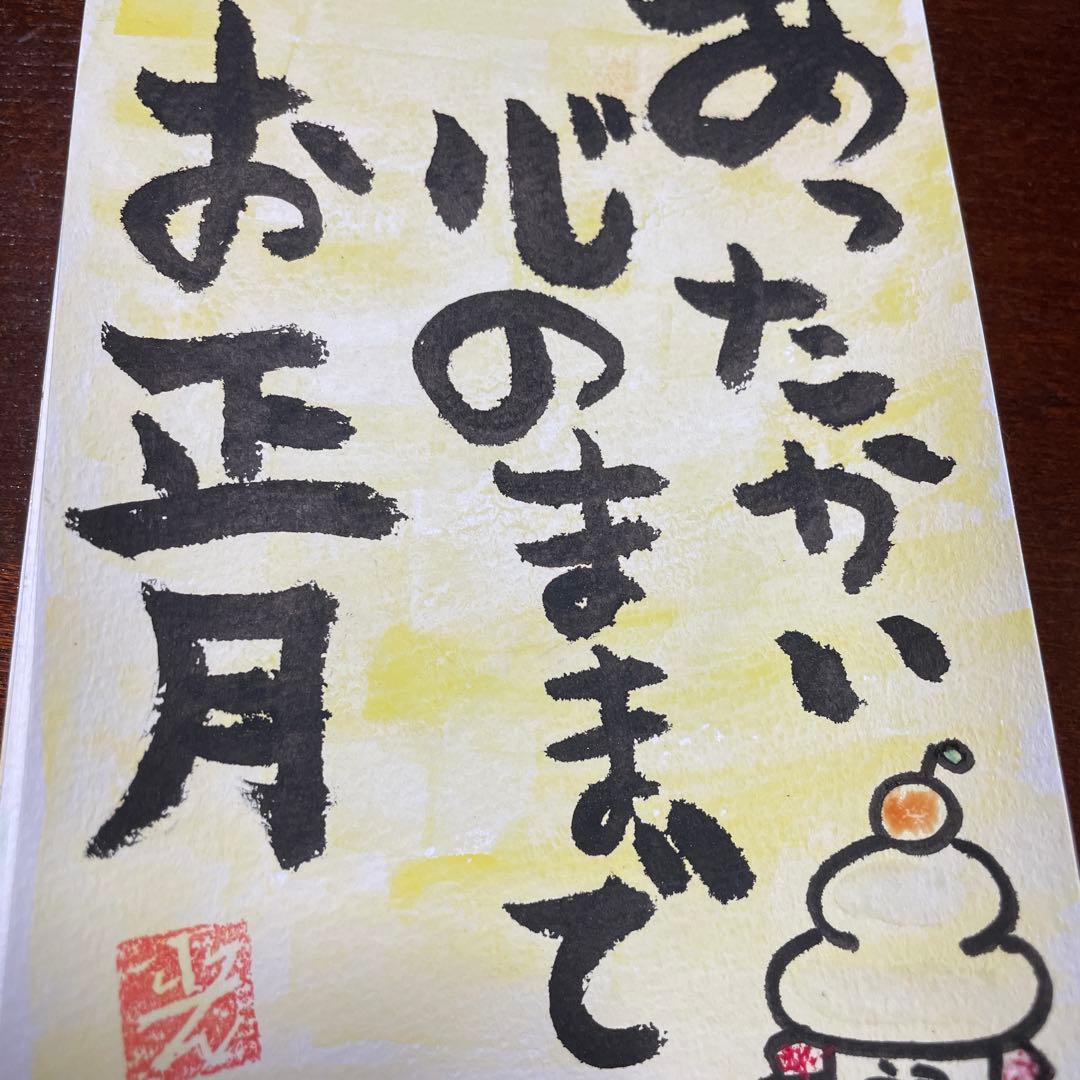 あったかい
心のままで
お正月